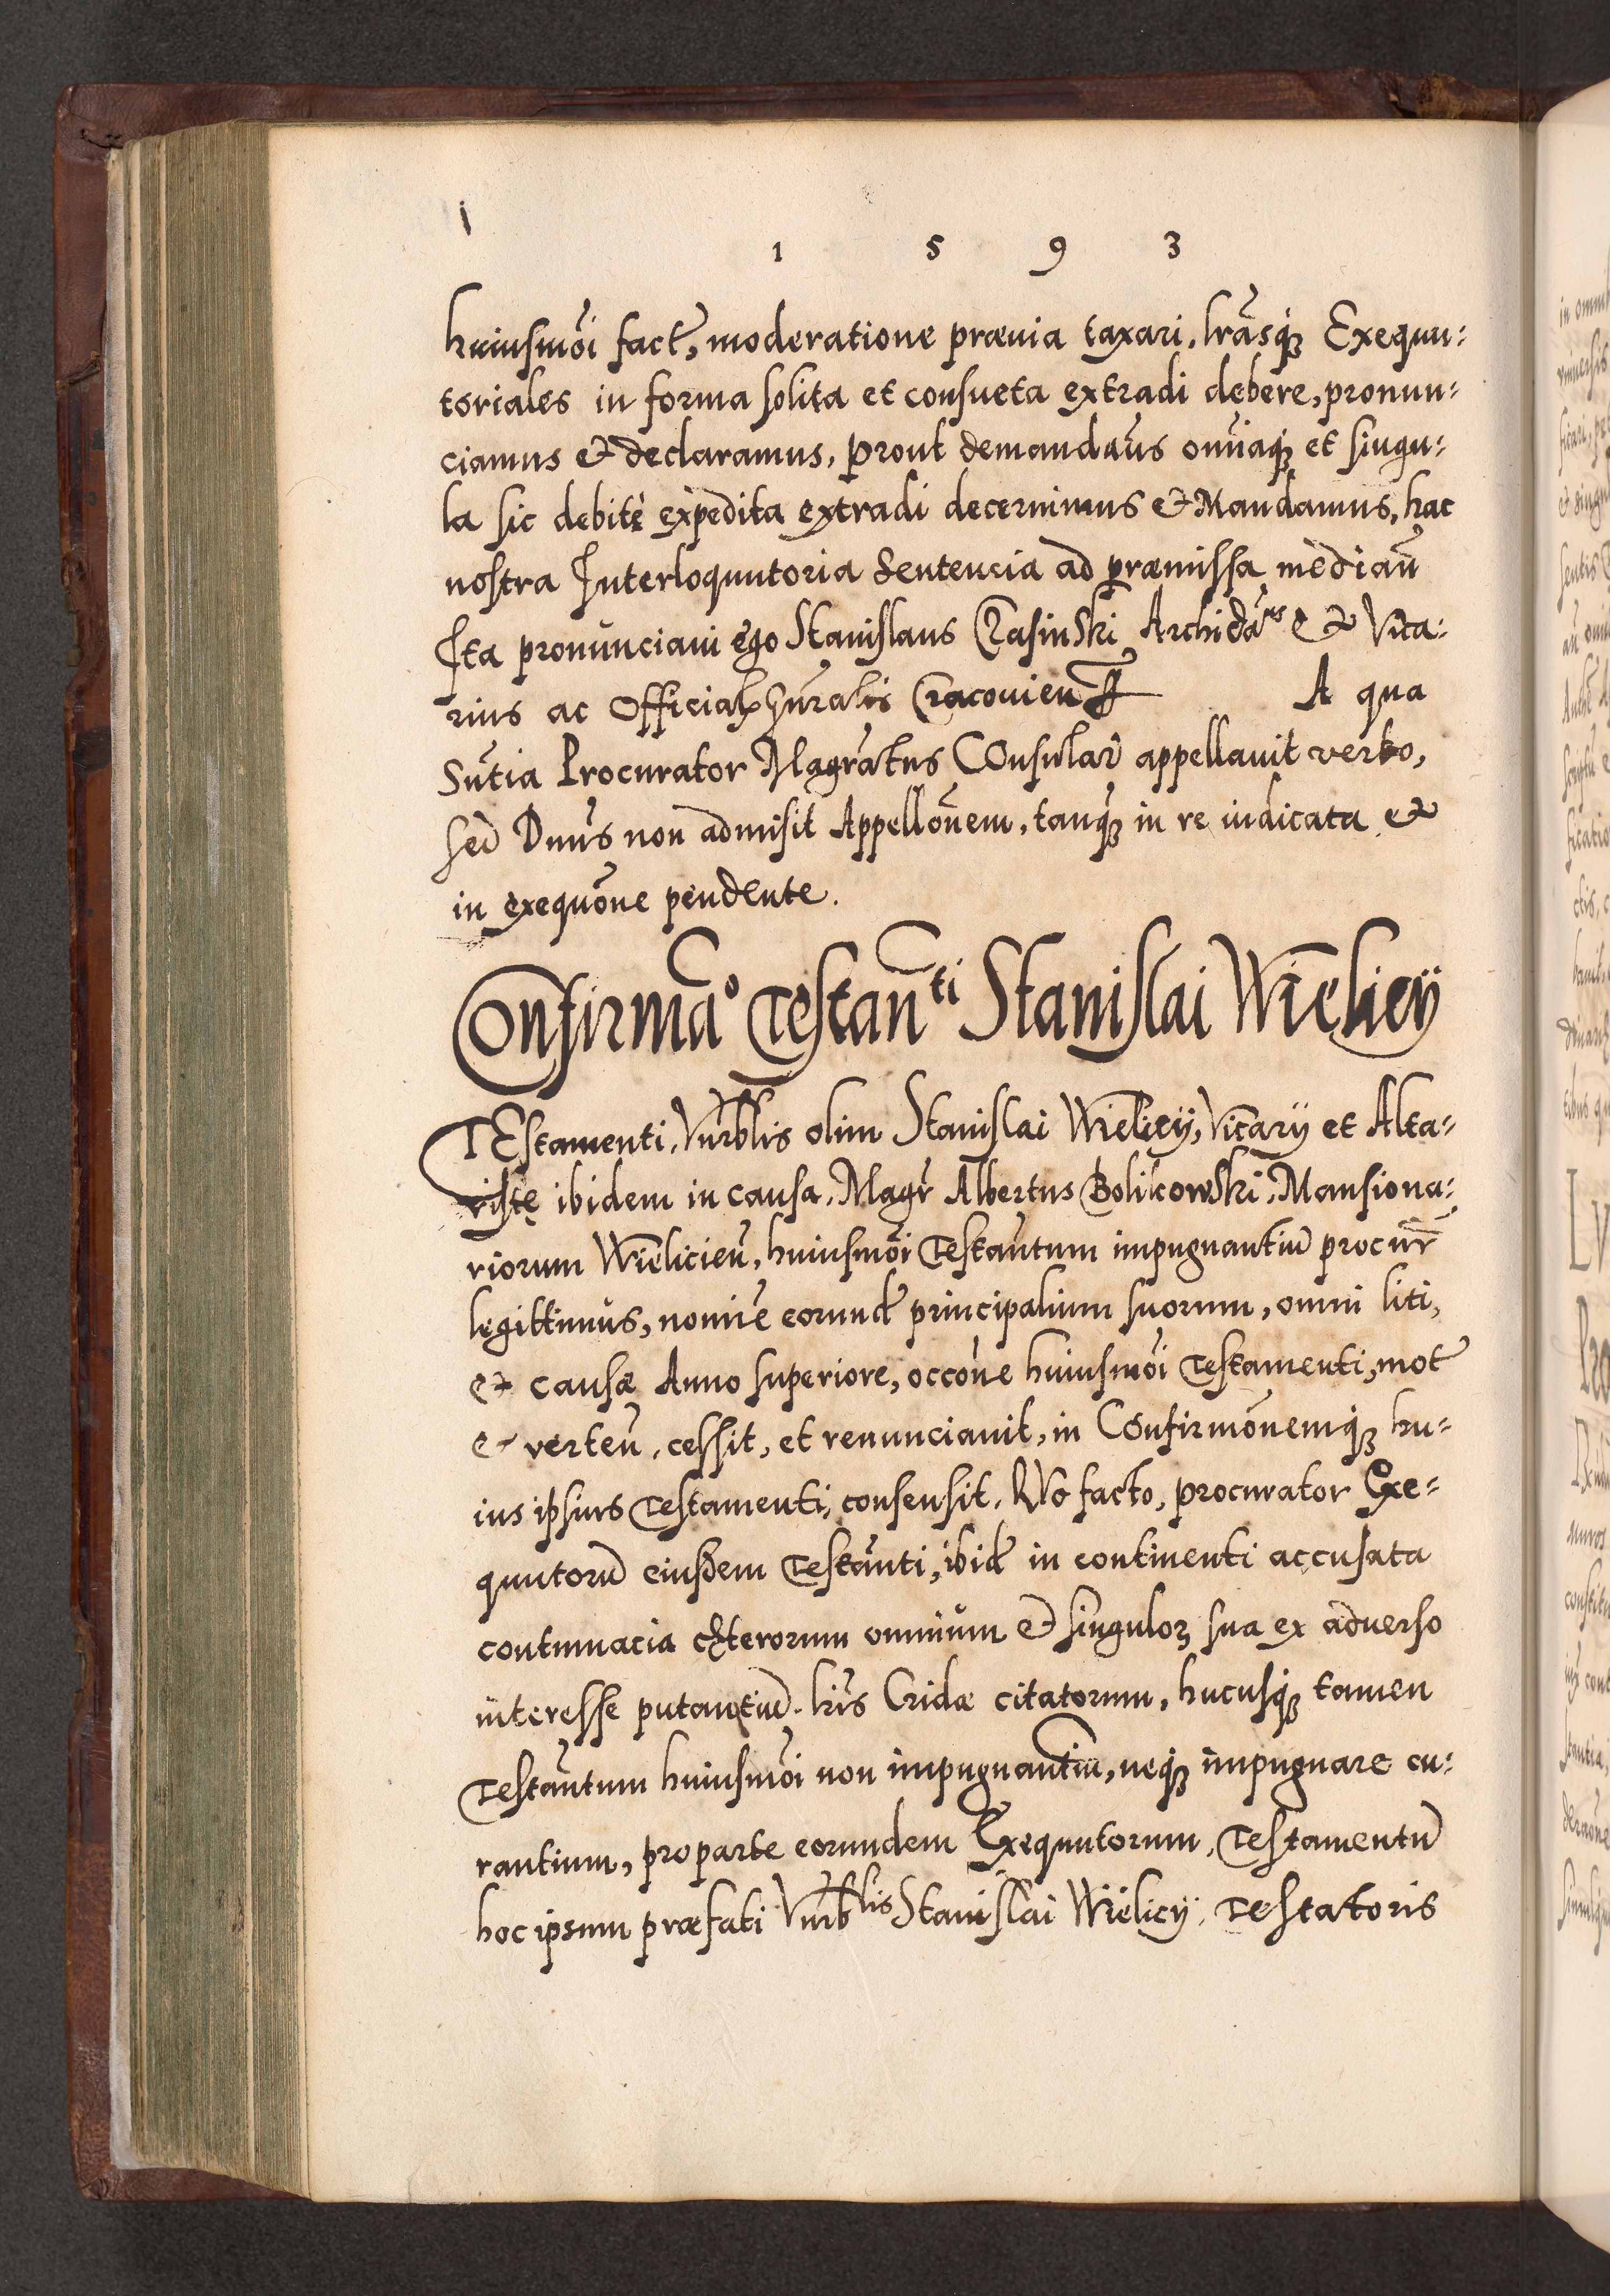 1 5 9 3
huiusmōi fact, moderatione præuia taxari, lrāsq; Exequu-
toriales in forma solita et consueta extradi debere, pronun-
ciamus et declaramus, prout demandaūs om̄iaq; et singu-
la sic debitè expedita extradi decernimus et Mandamus, hac
nostra Interloquutoria Sentencia ad præmissa mediāñ
Ita pronunciaui ego Stanislaus Crasinski Archidānus et Vica-
rius ac Officialis gn̄ralis Cracouien̄ A qua
Sn̄tia Procurator Magrātus COnsular̄ appellauit verbo,
sed Dnūs non admisit Appellōnem, tanq; in re iudicata et
in exequōne pendente.
Confirmāo Testanti Stanislai Wielicÿ
TEstamenti Vn̄rblis olim Stanislai Wielicÿ, Vicarÿ et Alta-
ristę ibidem in causa. Magr̄ Albertus Bolikowski Mansiona-
riorum Wielicien̄, huiusmōi Testāntum impugnantiū procur̄
legittimus, nomīe eorund principalium suorum, omni liti,
et causæ Anno superiore, occōne huiusmōi Testamenti, mot
et verten̄, cessit, et renunciauit, in COnfirmōnemq; hu-
ius ipsius Testamenti consensit. QVo facto, procurator Exe-
quutorū eiusdem Testānti, ibid in continenti accusata
contumacia cęterorum omnium et singuloꝝ sua ex aduerso
interesse putantiū lrīs Cridæ citatorum, hucusq; tamen
Testāntum huiusmōi non impugnantiū, neq; impugnare cu-
rantium, pro parte eorundem Exequutorum, Testamentū
hoc ipsum præfati Vn̄rblis Stanislai Wielicÿ Testatoris